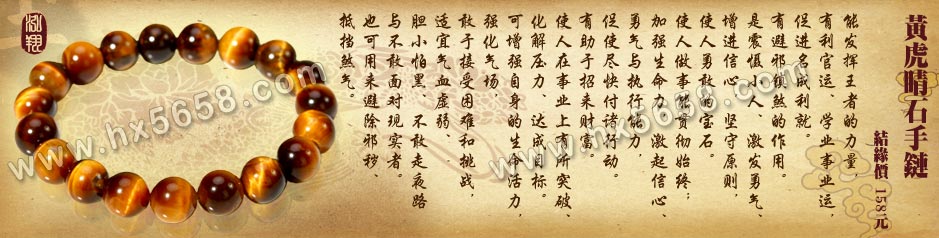 黃虎睛石手鏈
結緣價 158元
能发挥王者的力量
有利官运、学业事业运,
促进名成利就。
有避邪镇煞的作用。
是震慑小人、激发勇气、
增进信心、坚守原则,
使人勇敢的宝石。
使人做事能贯彻始终,
加强生命力、激起信心、
勇气与执行能力,
促使尽快付诸行动。
有助于招来财富。
使人在事业上有所突破、
化解压力、达成目标。
可增强自身的生命活力,
强化气场。
敢于接受困难和挑战,
适宜气血虚弱、
胆小怕黑、不敢走夜路
与不敢面对现实者。
也可用来避除邪秽、
抵挡煞气。
泓翔
www.hx5658.com
www.hx5658.com
www.hx5658.com